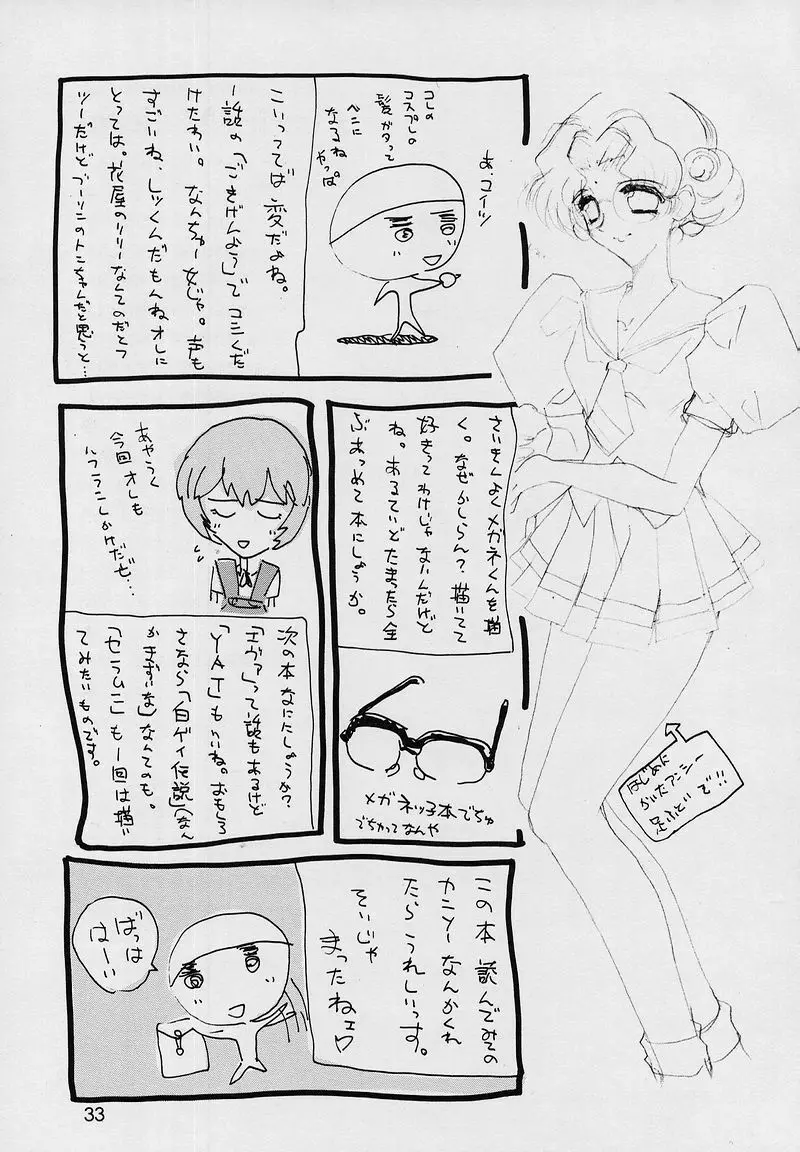 あ、コイツ
コレの
コスプレの
髪がタって
ベニに
なるね
やっぱ
こいつってば変だよね。
一話の「ごきげんよう」でコミくだ
けたわい。なんちゅー女じゃ。声も
すごいね、しっくんだもんねオレに
とっては。花屋のリリーなんてのだとつ
ツーだけどブーリンのトンちゃんだと思うと…
さいきんよくメガネくんを描
く。なぜかしらん?描いてて
好きってわけじゃないんだけど
ね。あるていどたまったら全
ぶあつめて本にしようか。
メガネッ子本でちゅ
でちかってなんや
あやうく
今回オレも
しかけだぜ…
次の本なににしようか?
「エヴァ」って話もあるけど
「YAT」もいいね。おもしろ
さなら「白ゲイ伝説」(なん
かまずいな)なんてのも。
「セラムン」も一回は描い
てみたいものです。
はじめに
がいたアンシー
足ふといで!!
この本読んでみての
カンソーなんかくれ
たらうれしいっす。
そいじゃ
まったねェ
ばっは
はーい
33